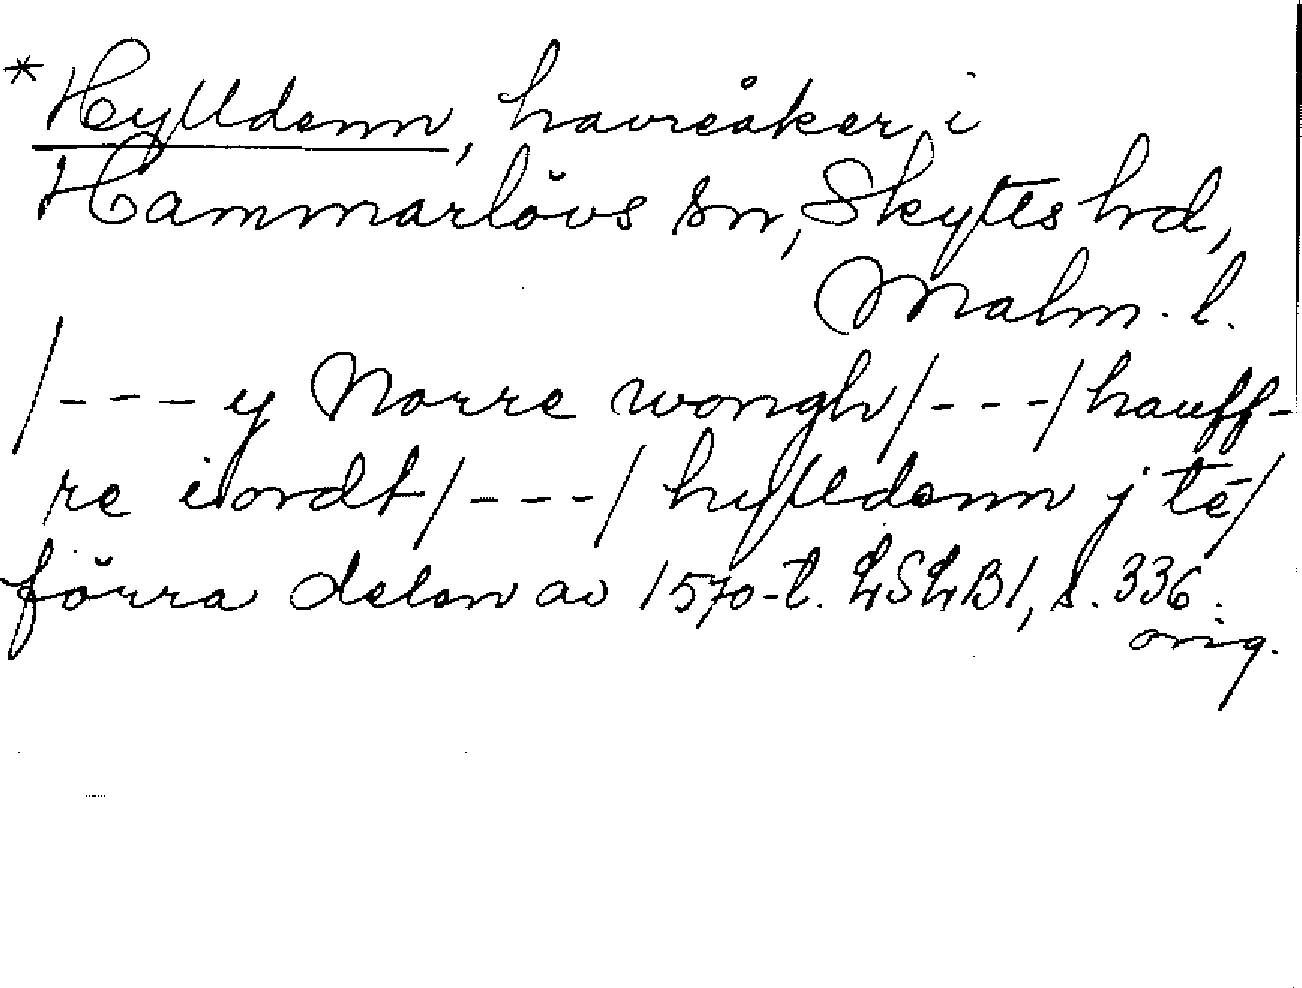 *Hylldenn, havreåker i
Hammarlövs sn, Skytts hd,
Malm. l.
/---y Norre wongh/---/hauff-
re iordt/---/hylldenn j te/
förra delen av 1570-t. LSLB1, s. 336.
orig.